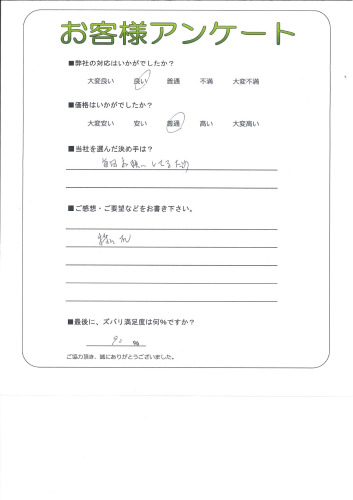 お客様アンケート
■弊社の対応はいかがでしたか？
大変良い 良い 普通 不満 大変不満
■価格はいかがでしたか？
大変安い 安い 普通 高い 大変高い
■当社を選んだ決め手は？
毎回お願いしてるため
■ご感想・ご要望などをお書き下さい。
■最後に、ズバリ満足度は何％ですか？
90 ％
ご協力頂き、誠にありがとうございました。